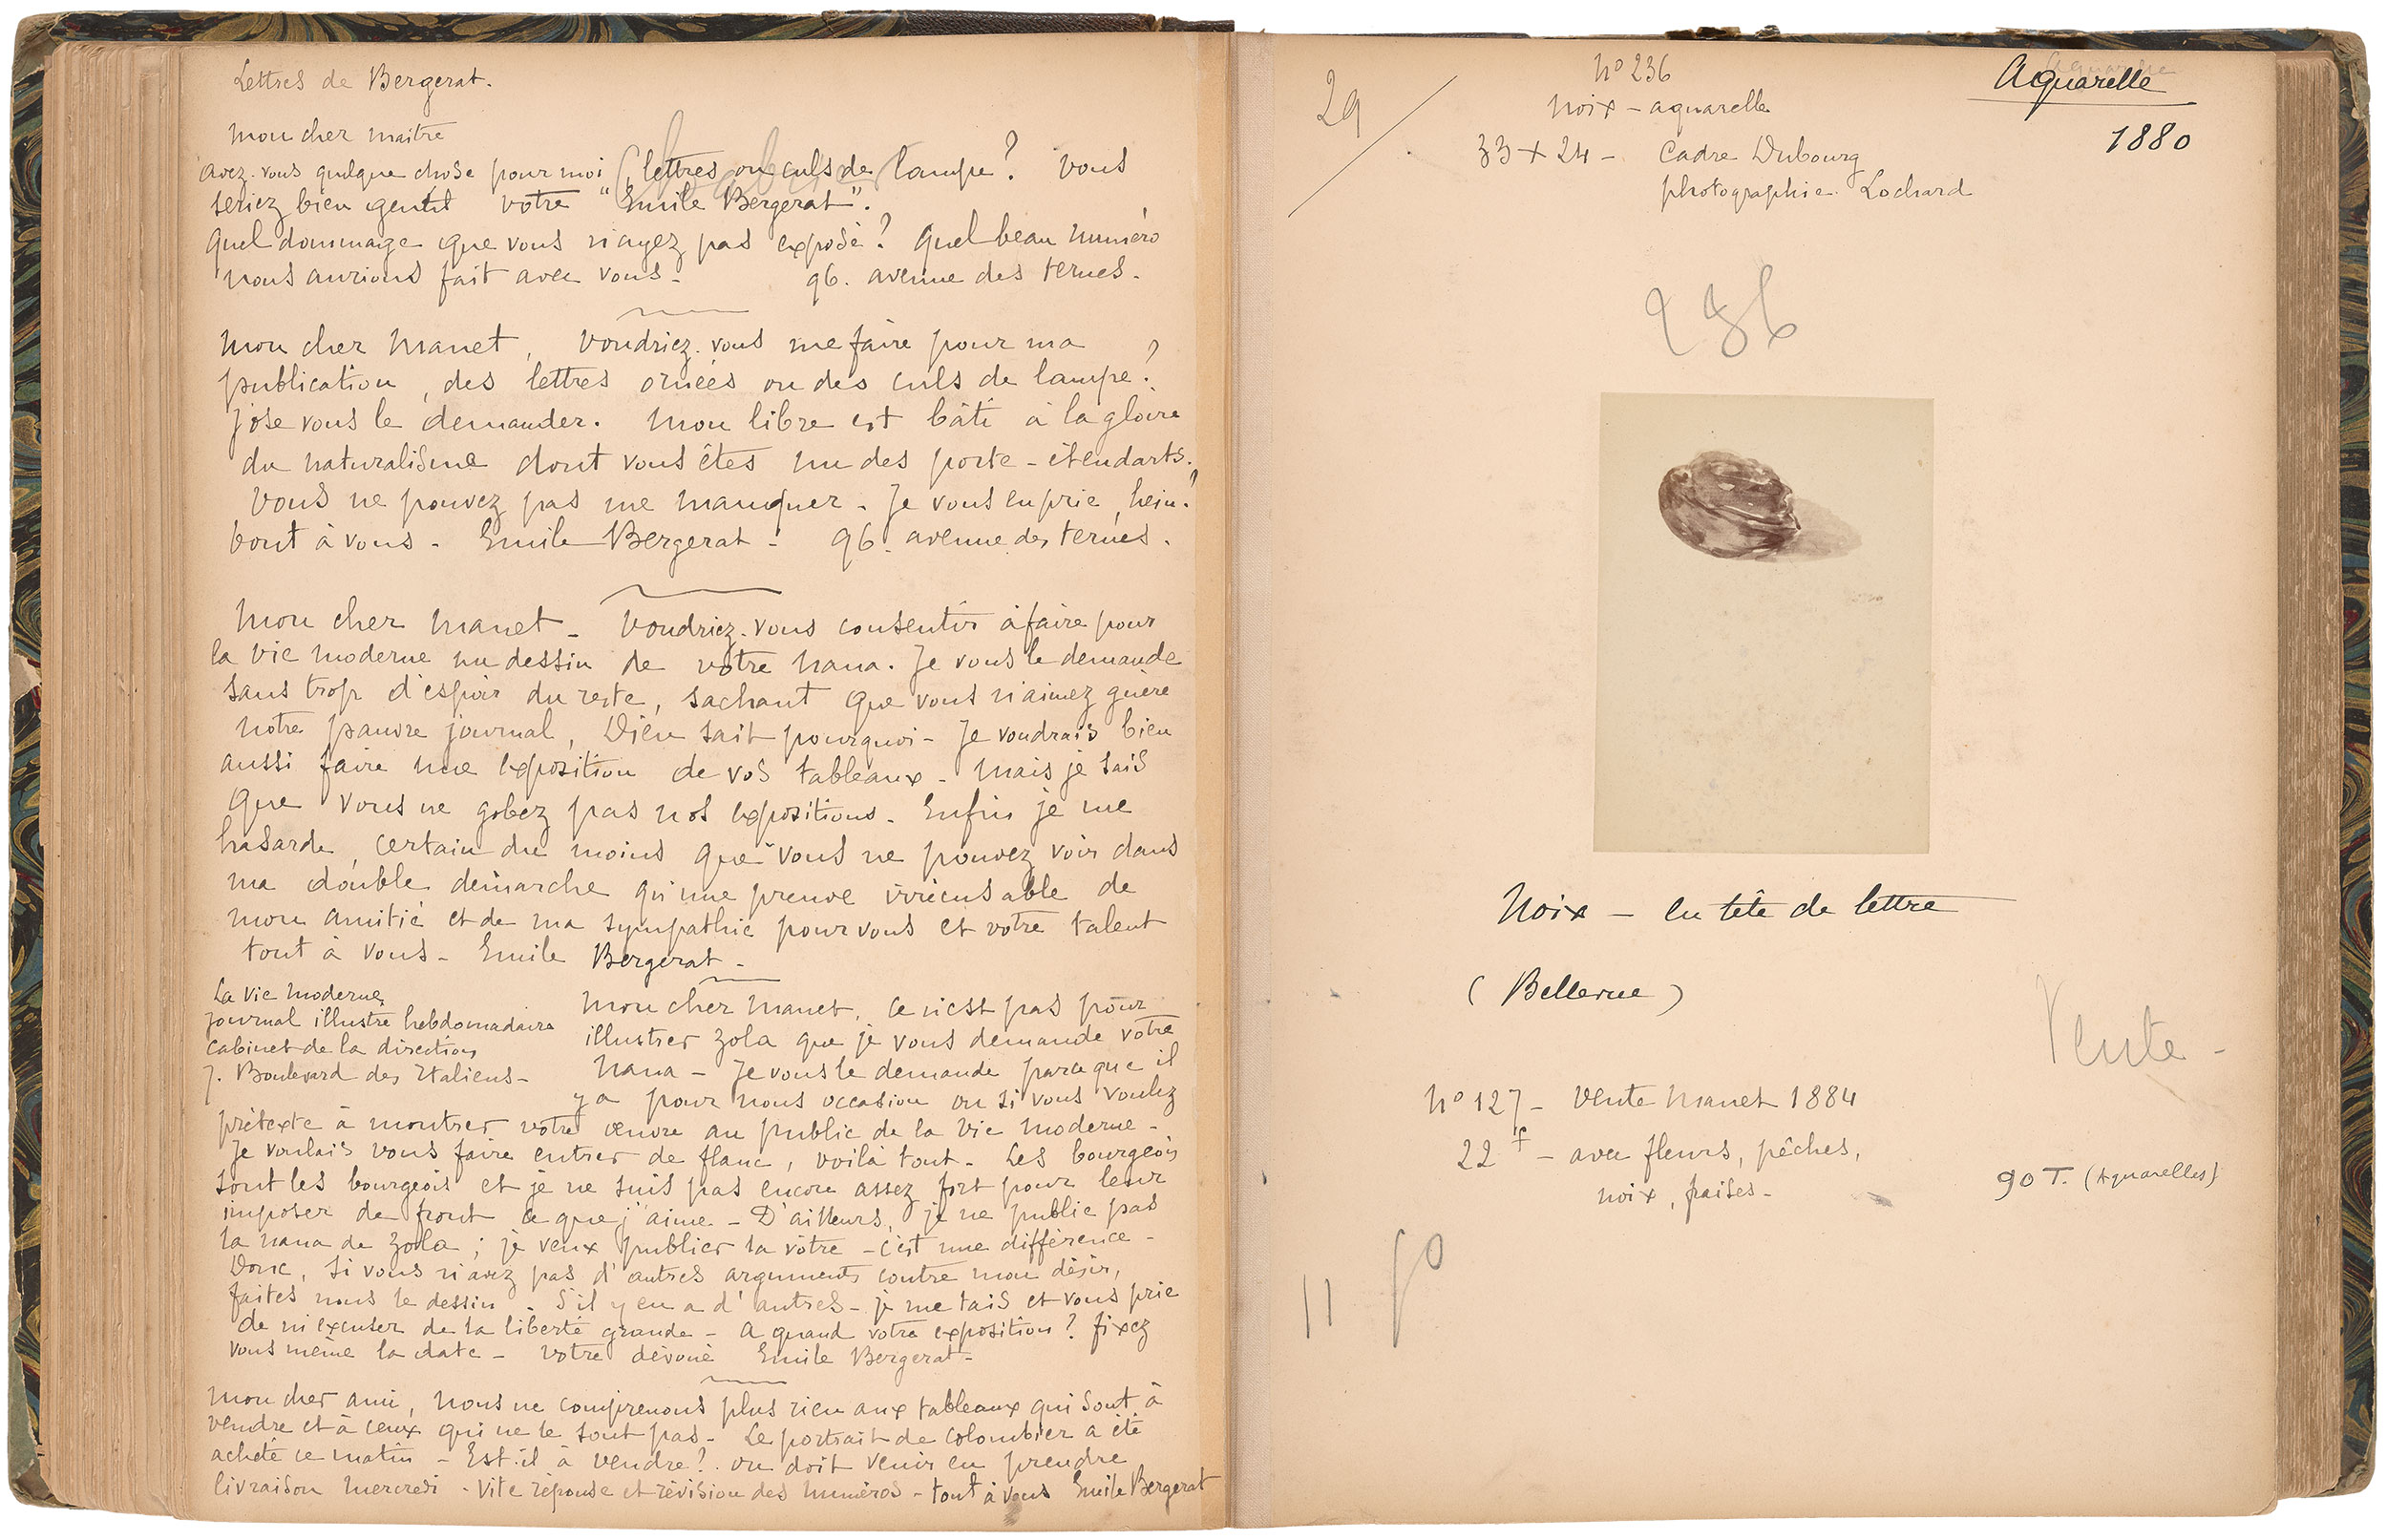 Lettres de Bergerat.
Mon cher maître
avez-vous quelque chose pour moi, lettres ou culs de lampe? Vous
seriez bien gentil votre "Emile Bergerat".
Quel dommage que vous n'ayez pas exposé? Quel beau numéro
nous aurions fait avec vous - 96. avenue des ternes.
Mon cher Manet, Voudriez-vous me faire pour ma
publication, des lettres ornées ou des culs de lampe?
J'ose vous le demander. Mon libre est bâti à la gloire
du naturalisme dont vous êtes un des porte-étendarts.
Vous ne pouvez pas me manquer - Je vous en prie, hein?
tout à vous - Emile Bergerat - 96. avenue des ternes.
Mon cher Manet - Voudriez-vous consentir à faire pour
la Vie Moderne un dessin de votre Nana. Je vous le demande
sans trop d'espoir du reste, sachant que vous n'aimez guère
notre pauvre journal, Dieu sait pourquoi - Je voudrais bien
aussi faire une exposition de vos tableaux - Mais je sais
que vous ne gobez pas nos expositions - Enfin je me
hasarde, certain du moins que vous ne pouvez voir dans
ma double démarche qu'une preuve irrécusable de
mon amitié et de ma sympathie pour vous et votre talent
tout à vous - Emile Bergerat -
La Vie Moderne,
journal illustré hebdomadaire
Cabinet de la direction
7. Boulevard des Italiens -
Mon cher Manet, Ce n'est pas pour
illustrer Zola que je vous demande votre
Nana - Je vous le demande parce que il
y a pour nous occasion ou si vous voulez
prétexte à montrer votre œuvre au public de la Vie Moderne -
Je voulais vous faire entrer de flanc, voilà tout - Les bourgeois
sont les bourgeois et je ne suis pas encore assez fort pour leur
imposer de front ce que j'aime - D'ailleurs, je ne publie pas
la Nana de Zola; je veux publier la vôtre - c'est une différence -
Donc, si vous n'avez pas d'autres arguments contre mon désir,
faites nous le dessin - S'il y en a d'autres - je me tais et vous prie
de m'excuser de la liberté grande - A quand votre exposition? fixez
vous même la date - Votre dévoué Emile Bergerat -
Mon cher ami, Nous ne comprenons plus rien aux tableaux qui sont à
vendre et à ceux qui ne le sont pas - Le portrait de Colombier a été
acheté ce matin - Est-il à vendre? on doit venir en prendre
livraison mercredi - Vite réponse et révision des numéros - tout à vous Emile Bergerat
29
No 236
Noix - aquarelle
33 x 24 - Cadre Dubourg
photographie Lochard
Aquarelle
1880
236
Noix - en tête de lettre
(Bellevue)
Vente -
No 127 - Vente Manet 1884
22 f - avec fleurs, pêches,
noix, fraises -
90 T. (Aquarelles)
11